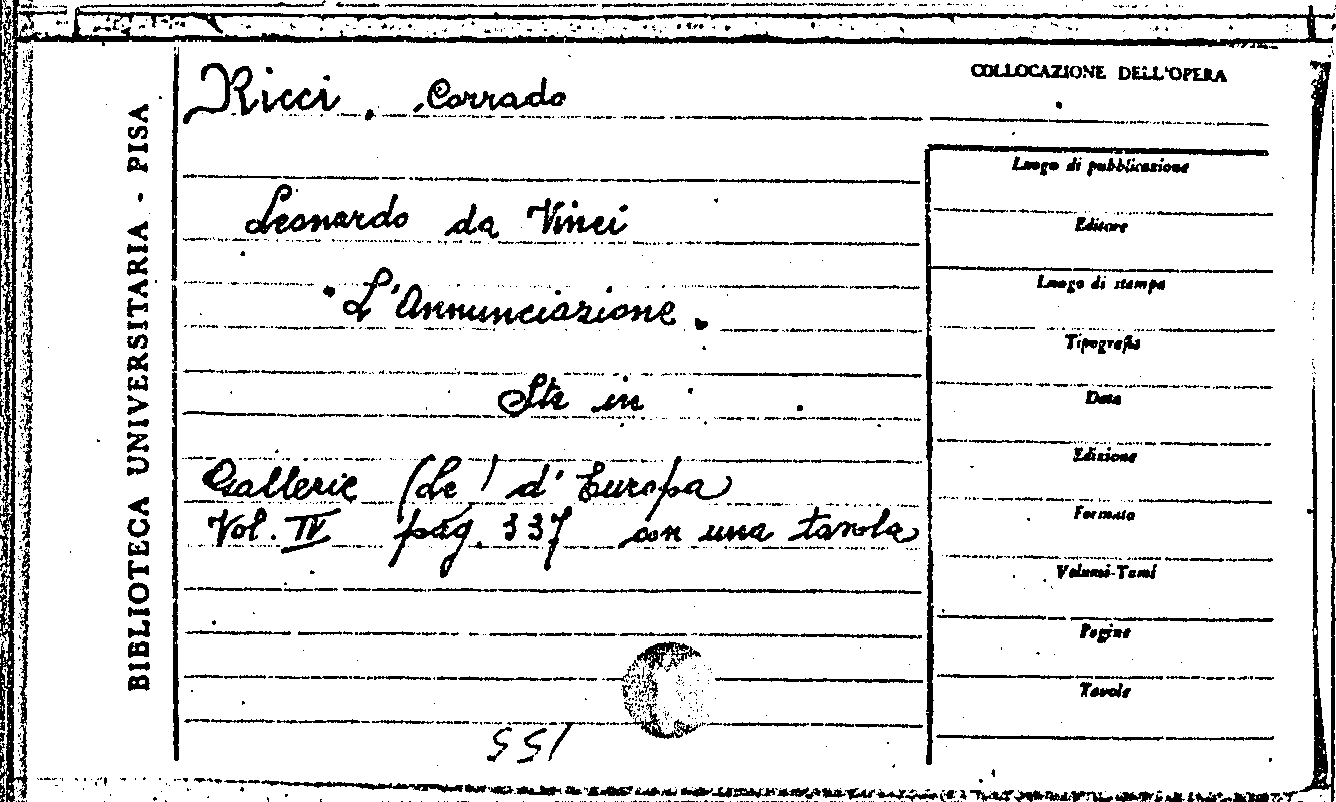 BIBLIOTECA UNIVERSITARIA - PISA
Ricci, Corrado
Leonardo da Vinci
"L'Annunciazione"
Sta in
Gallerie (le) d'Europa
Vol. IV pag. 337 con una tavola
COLLOCAZIONE DELL'OPERA
Luogo di pubblicazione
Editore
Luogo di stampa
Tipografia
Data
Edizione
Formato
Volumi-Tomi
Pagine
Tavole